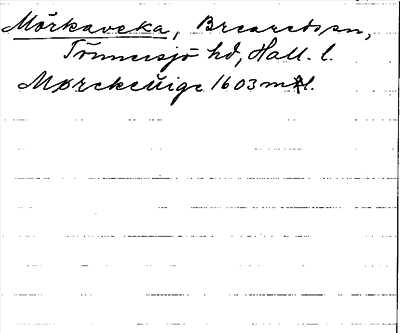 Mörkaveka, Breareds sn,
Tönnersjö hd, Hall. l.
Mørckeuige 1603 mtl.